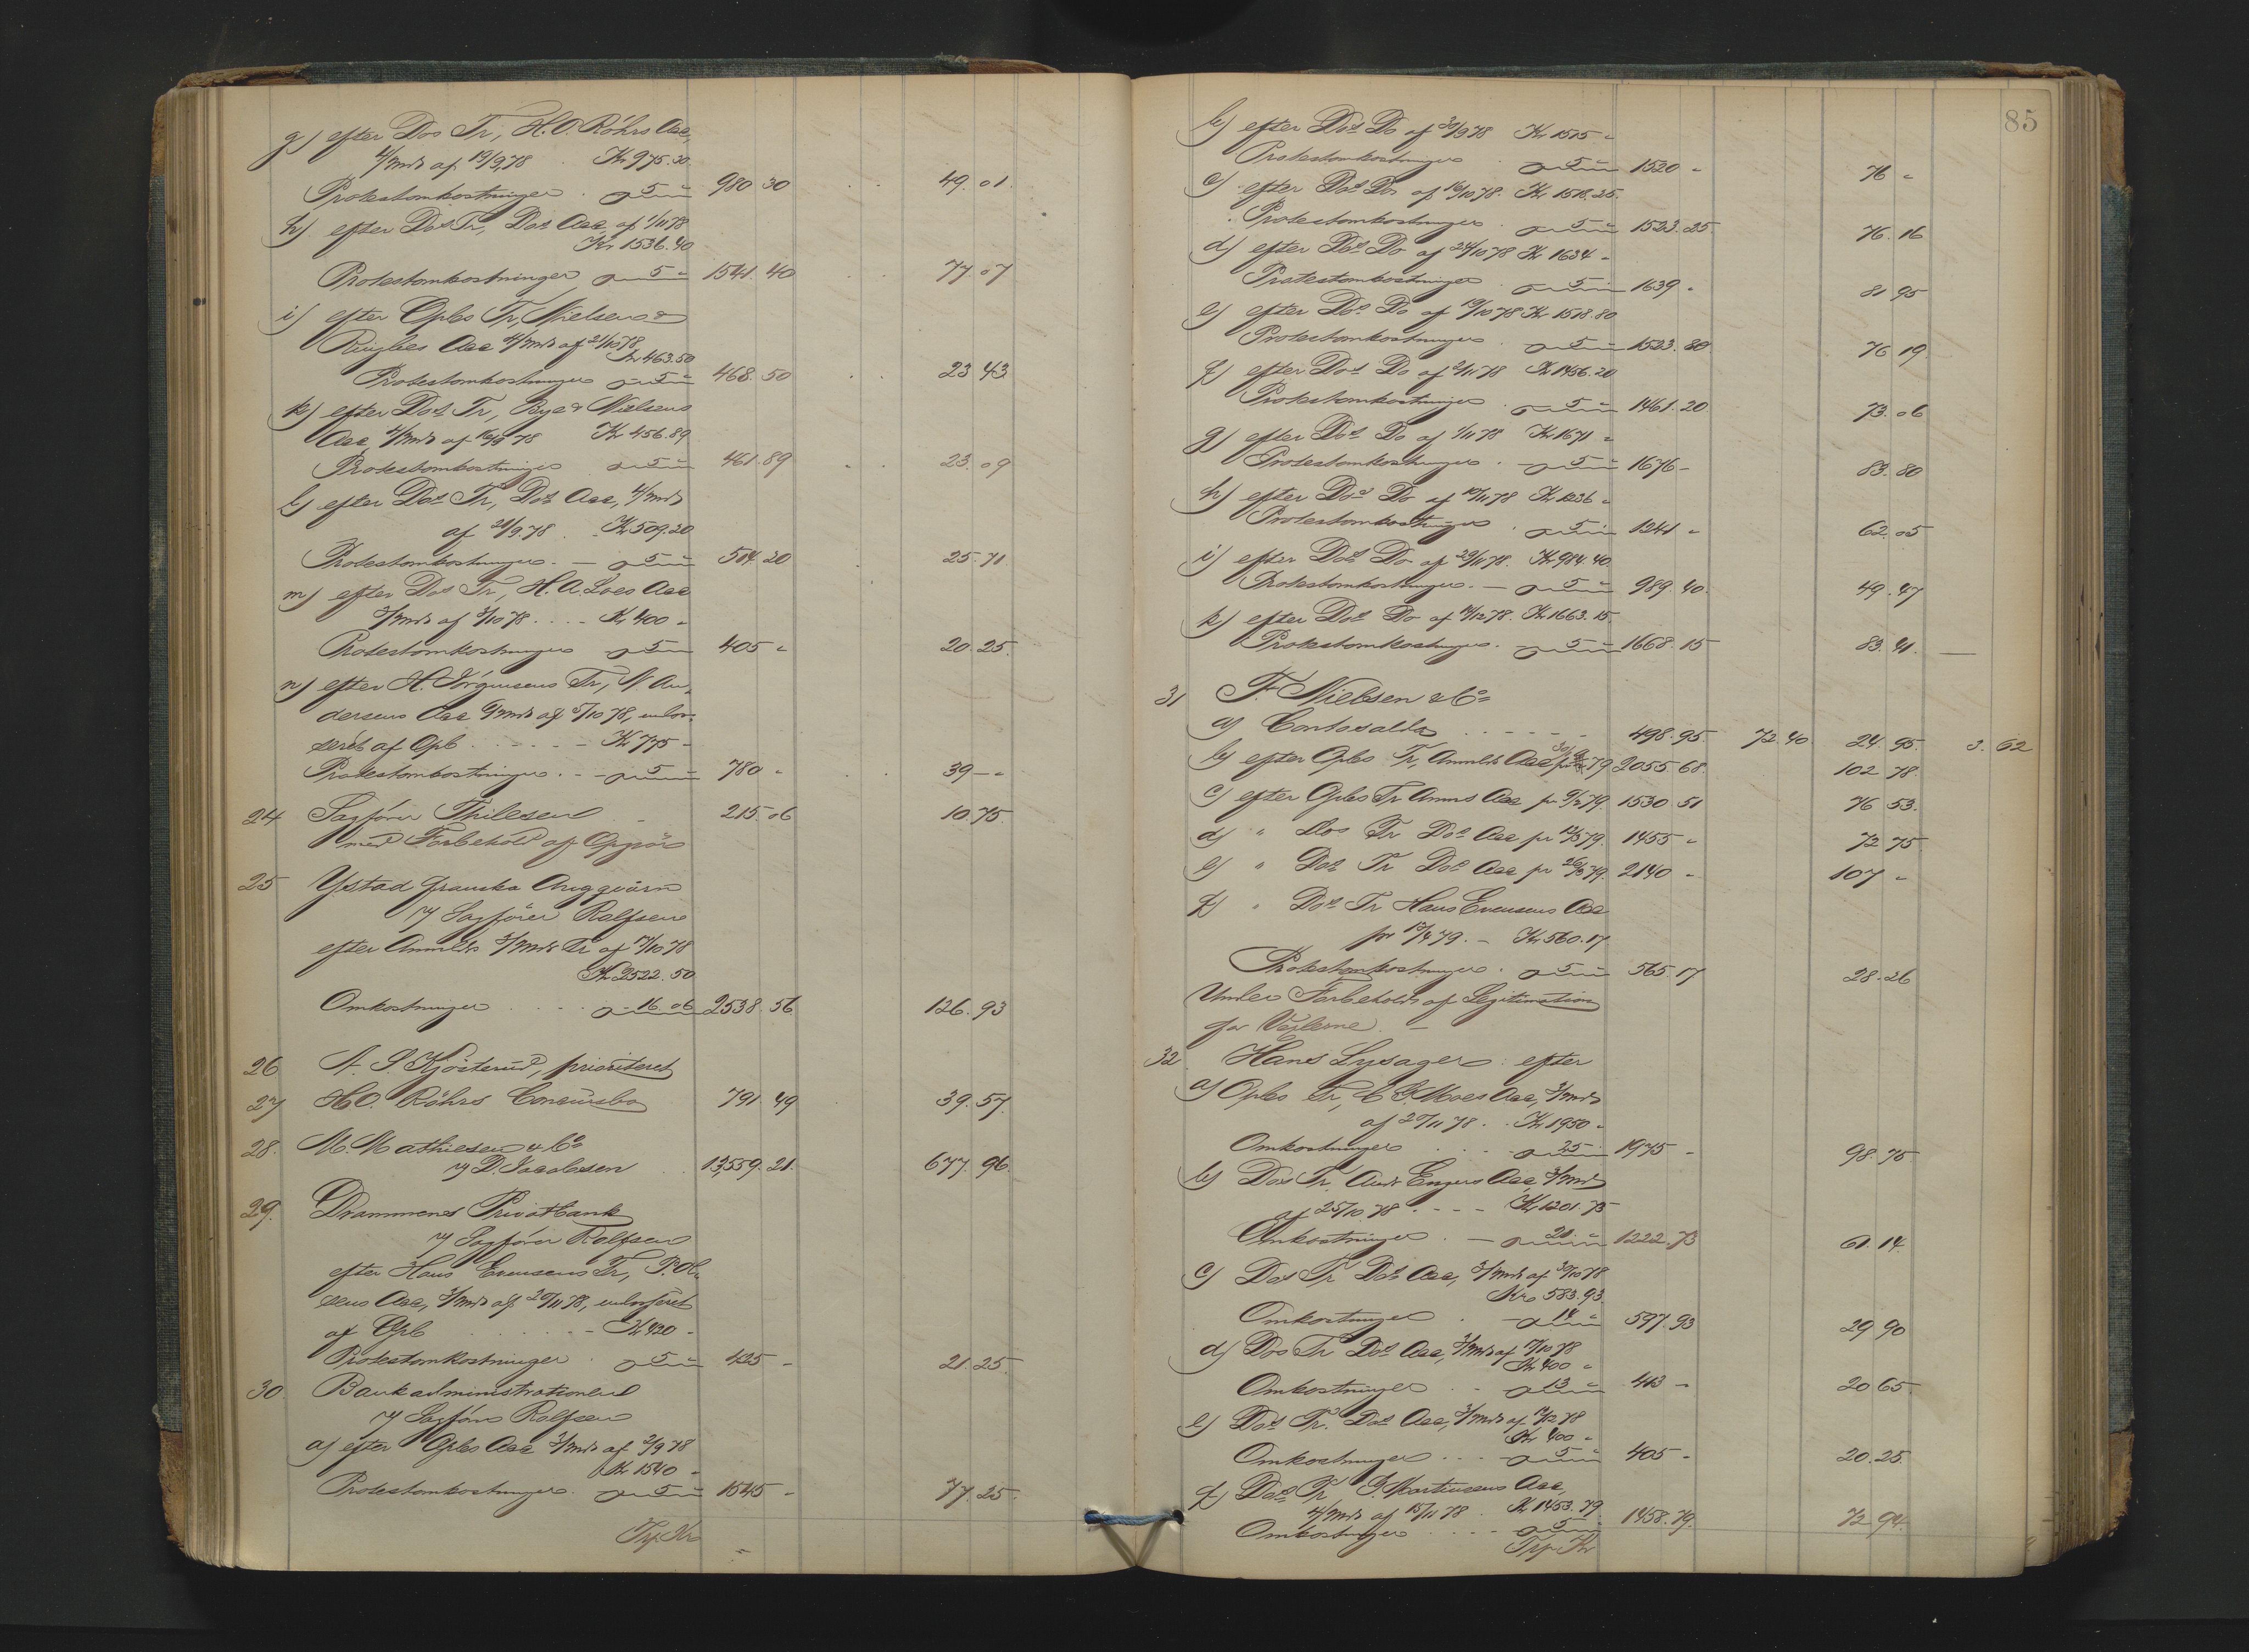 g) efter Dos Tr, H. O. Röhrs Acc,
4/mds af 19/9,78 . Kr 975.30
Protestomkostninger . - 5 " 980.30 49.01
h) efter Dos Tr, Dos Acc af 1/11 78
Kr 1536.40
Protestomkostninger - 5 " 1541.40 77.07
i) efter Opbs Tr, Nielsen &
Ringbes Acc 4/mds af 21/10 78
Kr 463.50
Protestomkostninger - 5 " 468.50 23.43
k) efter Dos Tr, Bye & Nielsens
Acc, 4/mds af 16/9 78 Kr 456.89
Protestomkostninger - 5 " 461.89 23.09
l) efter Dos Tr, Dos Acc, 4/mds
af 28/9.78 . Kr 509.20
Protestomkostninger - 5 " 514.20 25.71
m) efter Dos Tr, H. A. Loes Acc
3/mds af 3/10 78 . . . . Kr 400 "
Protestomkostninger - 5 " 405 " 20.25
n) efter H. Jörgensens Tr, N. An-
dersens Acc 6/mds af 5/10 78, endos-
seret af Opb . . . . . - Kr 775 -
Protestomkostninger . - - 5 " 780 " 39 - "
24 Sagförer Thilesen 215.06 10.75
med Forbehold af Opgjör
25 Ystad
v/ Sagförer Rolfsen
efter Anmelds 3/mds Tr af 17/10 78
Kr 2522.50
Omkostninger . . . - 16.06 2538.56 126.93
26 A. S. Kjösterud, prioriteret
27 H O. Röhrs Concursbo 791.49 39.57
28. M. Mathiesen & Co
v/ D. Jacobsen . . 13,559.21 677.96
29. Drammens Privatbank
v/ Sagförer Rolfsen
efter Hans Evensens Tr, P. Ol-
sens Acc, 3/mds af 20/11 78, endosseret
af Opb . . . . . . - Kr 420 -
Protestomkostninger . - 5 " 425 - 21.25
30. Bankadministrationen
v/ Sagförer Rolfsen
a) efter Opbs Acc 3/mds af 2/9 78
Kr 1540 -
Protestomkostninger . - 5 " 1545 - 77.25
Trp. Kr
85
b) efter Dos Do af 30/9 78 Kr 1515 "
Protestomkostninger . - 5 " 1520 - 76 "
c) efter Dos Do af 16/10 78. Kr 1518.25
Protestomkostninger . - 5 " 1523.25 76.16
d) efter Dos Do af 24/10 78 Kr 1634 -
Protestomkostninger . - 5 " 1639 - 81.95
e) efter Dos Do af 19/10 78 Kr 1518.80
Protestomkostninger . - 5 " 1523.80 76.19
f) efter Dos Do af 2/11 78 Kr 1456.20
Protestomkostninger . - 5 " 1461.20 73.06
g) efter Dos Do af 1/11 78 Kr 1671 "
Protestomkostninger . - 5 " 1676 - 83.80
h) efter Dos Do af 19/11 78 Kr 1236 "
Protestomkostninger . - 5 " 1241 " 62.05
i) efter Dos Do af 29/11 78. Kr 984.40
Protestomkostninger . - 5 " 989.40 49.47
k) efter Dos Do af 4/12 78. Kr 1663.15
Protestomkostninger . - 5 " 1668.15 83.41
31 F. Nielsen & Co
a) Contosaldo . . . . . 498.95 72.40 24.95 3.62
b) efter Opbs Tr, Anmelds Acc pr 79 2055.68 102.78
c) efter Opbs Tr Anms Acc pr 79. 1530.51 76.53
d) " Dos Tr Dos Acc pr 79. 1455 " 72.75
e) " Dos Tr Dos Acc pr 79. 2140 - 107 "
f) " Dos Tr Hans Evensens Acc
pr 79. - Kr 560.17
Protestomkostninger . - 5 " 565.17 28.26
Under Forbehold af Legitimation
for Vexlerne. -
32. Hans Lysager: efter
a) Opbs Tr, C. F. Moes Acc, 3/mds
af 20/11 78 . . Kr 1950 "
Omkostninger . . . - 25 - 1975 - 98.75
b) Dos Tr. Acc, 3/mds
af 25/10.78 . - - - Kr 1201.73
Omkostninger . - 21 " 1222.73 61.14
c) Dos Tr Dos Acc, 3/mds af 30/10 78
Kr 583.93
Omkostninger . - 14 " 597.93 29.90
d) Dos Tr Dos Acc, 3/mds af 17/10 78
Kr 400 "
Omkostninger . - - 13 " 413 - 20.65
e) Dos Tr. Dos Acc, 3/mds af 78
Kr 400 "
Omkostninger . . . - 5 " 405 - 20.25
f) Dos Tr Martinsens Acc,
4/mds af 15/11 78 . Kr 1453.79
Omkostninger . . . - 5 " 1458.79. 72.94
Trp Kr